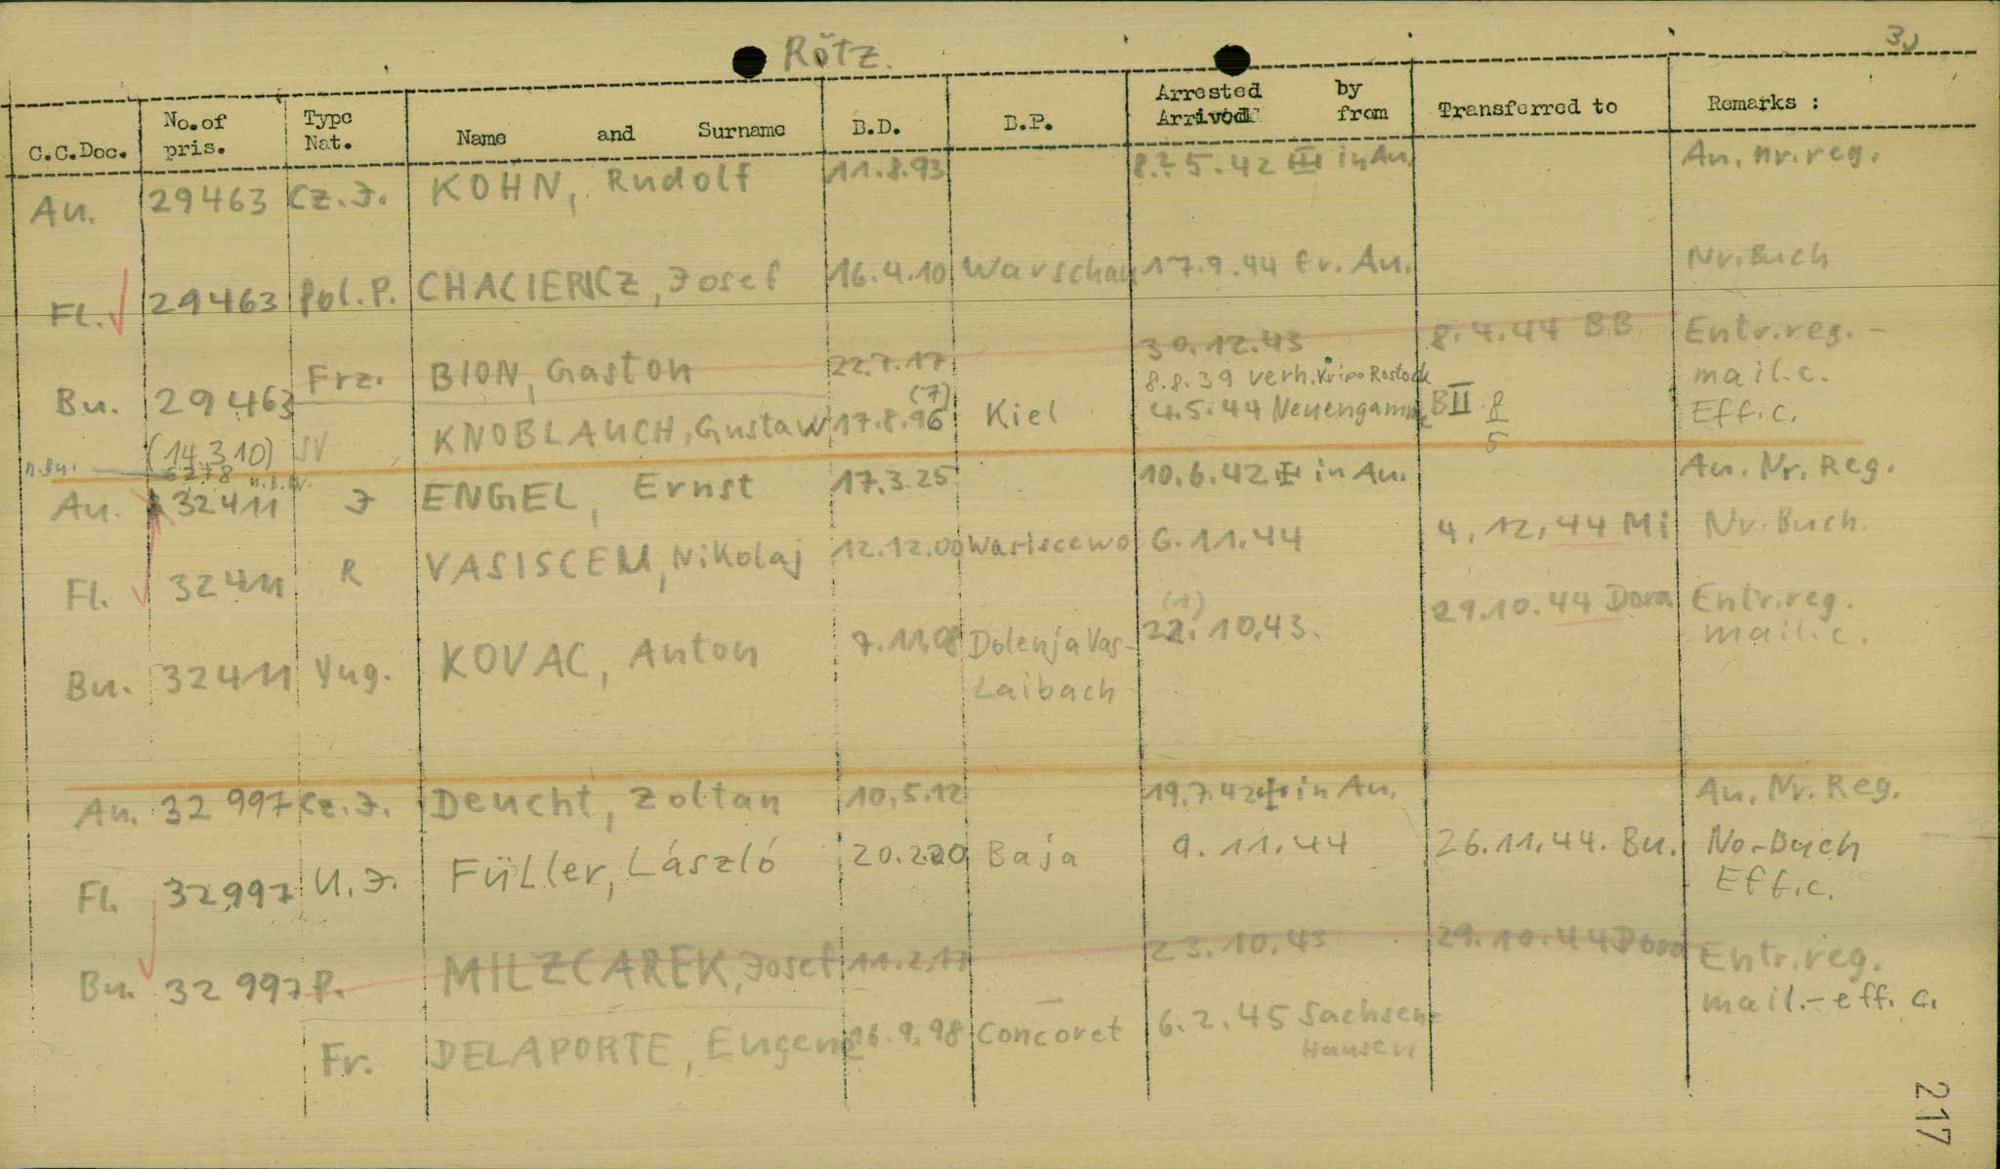 Rötz.
3.)
C.C.Doc. No.of pris. Type Nat. Name and Surname B.D. B.P. Arrested by Arrived from Transferred to Remarks :
An. 29463 Cz.J. KOHN, Rudolf 11.8.93 8.?5.42 III in An. An. nr.reg.
Fl. 29463 Pol.P. , Josef 16.4.10 Warschau 17.9.44 fr. An. Nr.Buch
Bu. 29463 Frz. BION, Gaston 22.7.17 30.12.43 8.4.44 BB Entr.reg.-
mail.c.
Eff.c.
(14310) SV KNOBLAUCH, Gustav 17.8.96 (7) Kiel 8.8.39 verh. Kripo Rostock
4.5.44 Neuengamme BII 8/5
n.Bu. 6278
An. 32411 J ENGEL, Ernst 17.3.25 10.6.42 in An. An. Nr. Reg.
Fl. 32411 R VASISCEM, Nikolaj 12.12.00 Wasiscewo 6.11.44 4.12.44 Mi Nr.Buch.
Bu. 32411 Yug. KOVAC, Anton 7.11.08 Dolenja Vas-
Laibach (1) 22.10.43. 29.10.44 Dora Entr.reg.
mail.c.
An. 32997 Cz.J. Deucht, Zoltan 10.5.12 19.7.42 in An. An. Nr. Reg.
Fl. 32997 U.J. Füller, László 20.2.20 Baja 9.11.44 26.11.44. Bu. No-Buch
Eff.c.
Bu. 32997 P. MILZCAREK, Josef 11.2.17 23.10.43 29.10.44 Dora Entr.reg.
mail.-eff. c.
Fr. DELAPORTE, Eugene 16.9.98 Concoret 6.2.45 Sachsen-
Hausen
217